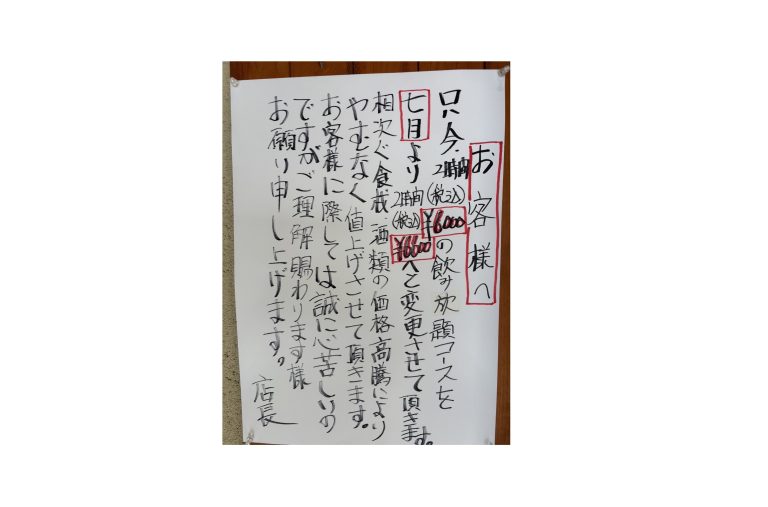 お客様へ
只今2時間(税込)¥6000の飲み放題コースを
七月より2時間(税込)¥6600へと変更させて頂きます。
相次ぐ食材 酒類の価格高騰により
やむなく値上げさせて頂きます。
お客様に際しては誠に心苦しいの
ですがご理解賜わります様
お願り申し上げます。
店長